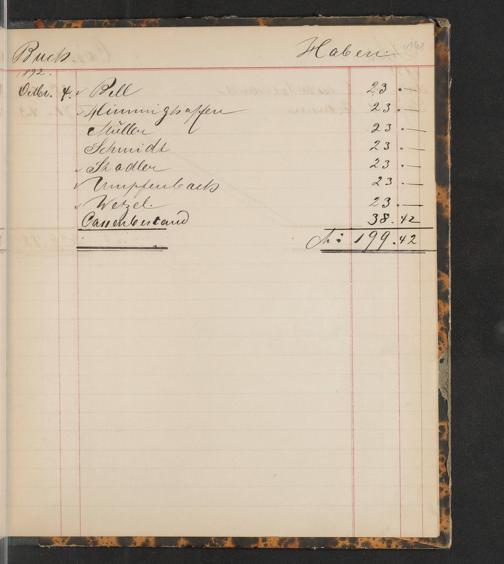 Buch Haben.
1892.
Octbr. 4. Bill 23.—
Himminghoffen 23.—
Müller 23.—
Schmidt 23.—
Stadler 23.—
Umpfenbach 23.—
Wetzel. 23.—
Cassenbestand 38.42
M: 199.42